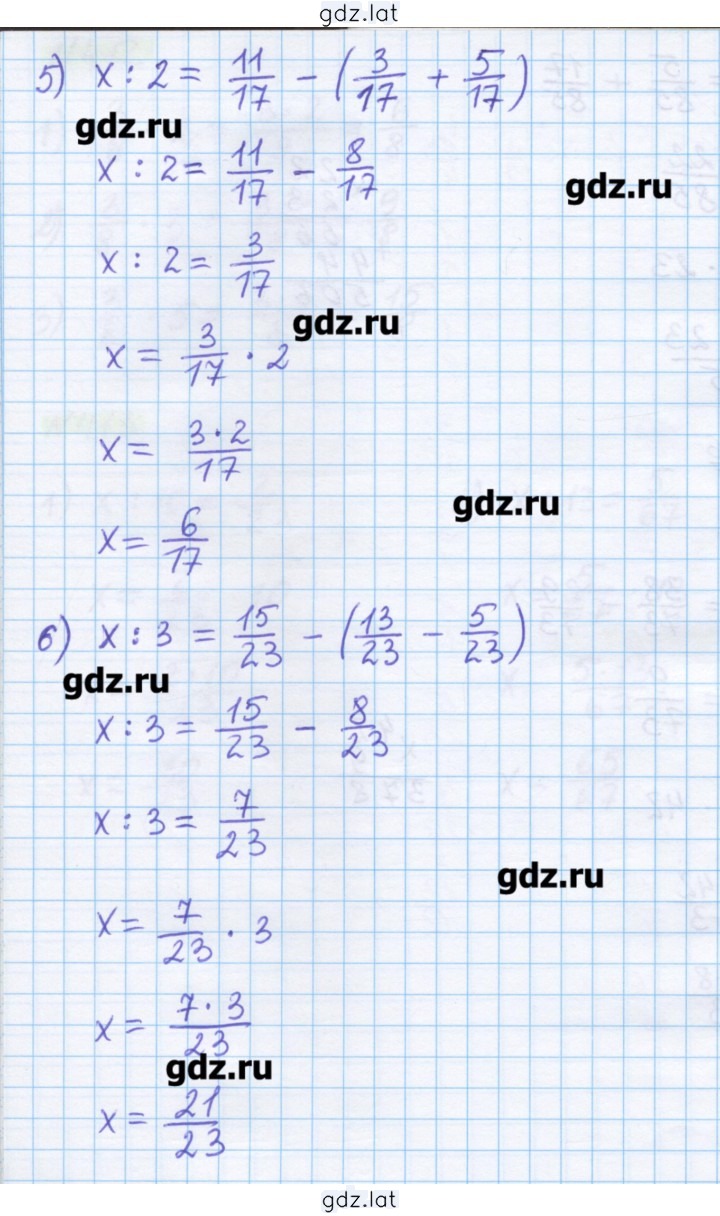 gdz.lat
5) x : 2 = 11/17 - (3/17 + 5/17)
gdz.ru
x : 2 = 11/17 - 8/17
gdz.ru
x : 2 = 3/17
gdz.ru
x = 3/17 · 2
x = 3·2/17
gdz.ru
x = 6/17
6) x : 3 = 15/23 - (13/23 - 5/23)
gdz.ru
x : 3 = 15/23 - 8/23
x : 3 = 7/23
gdz.ru
x = 7/23 · 3
x = 7·3/23
gdz.ru
x = 21/23
gdz.lat